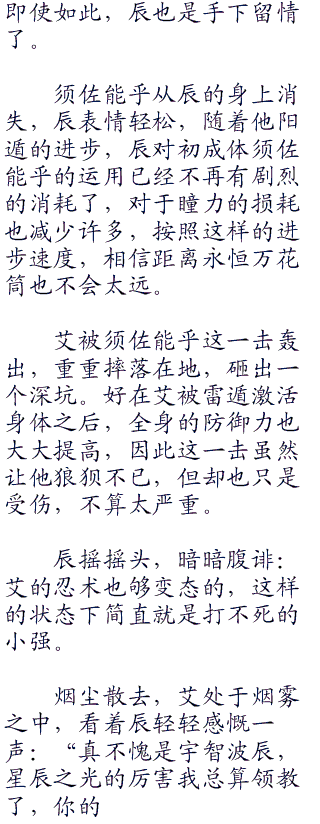 即使如此，辰也是手下留情
了。
须佐能乎从辰的身上消
失，辰表情轻松，随着他阳
遁的进步，辰对初成体须佐
能乎的运用已经不再有剧烈
的消耗了，对于瞳力的损耗
也减少许多，按照这样的进
步速度，相信距离永恒万花
筒也不会太远。
艾被须佐能乎这一击轰
出，重重摔落在地，砸出一
个深坑。好在艾被雷遁激活
身体之后，全身的防御力也
大大提高，因此这一击虽然
让他狼狈不已，但却也只是
受伤，不算太严重。
辰摇摇头，暗暗腹诽：
艾的忍术也够变态的，这样
的状态下简直就是打不死的
小强。
烟尘散去，艾处于烟雾
之中，看着辰轻轻感慨一
声：“真不愧是宇智波辰，
星辰之光的厉害我总算领教
了，你的